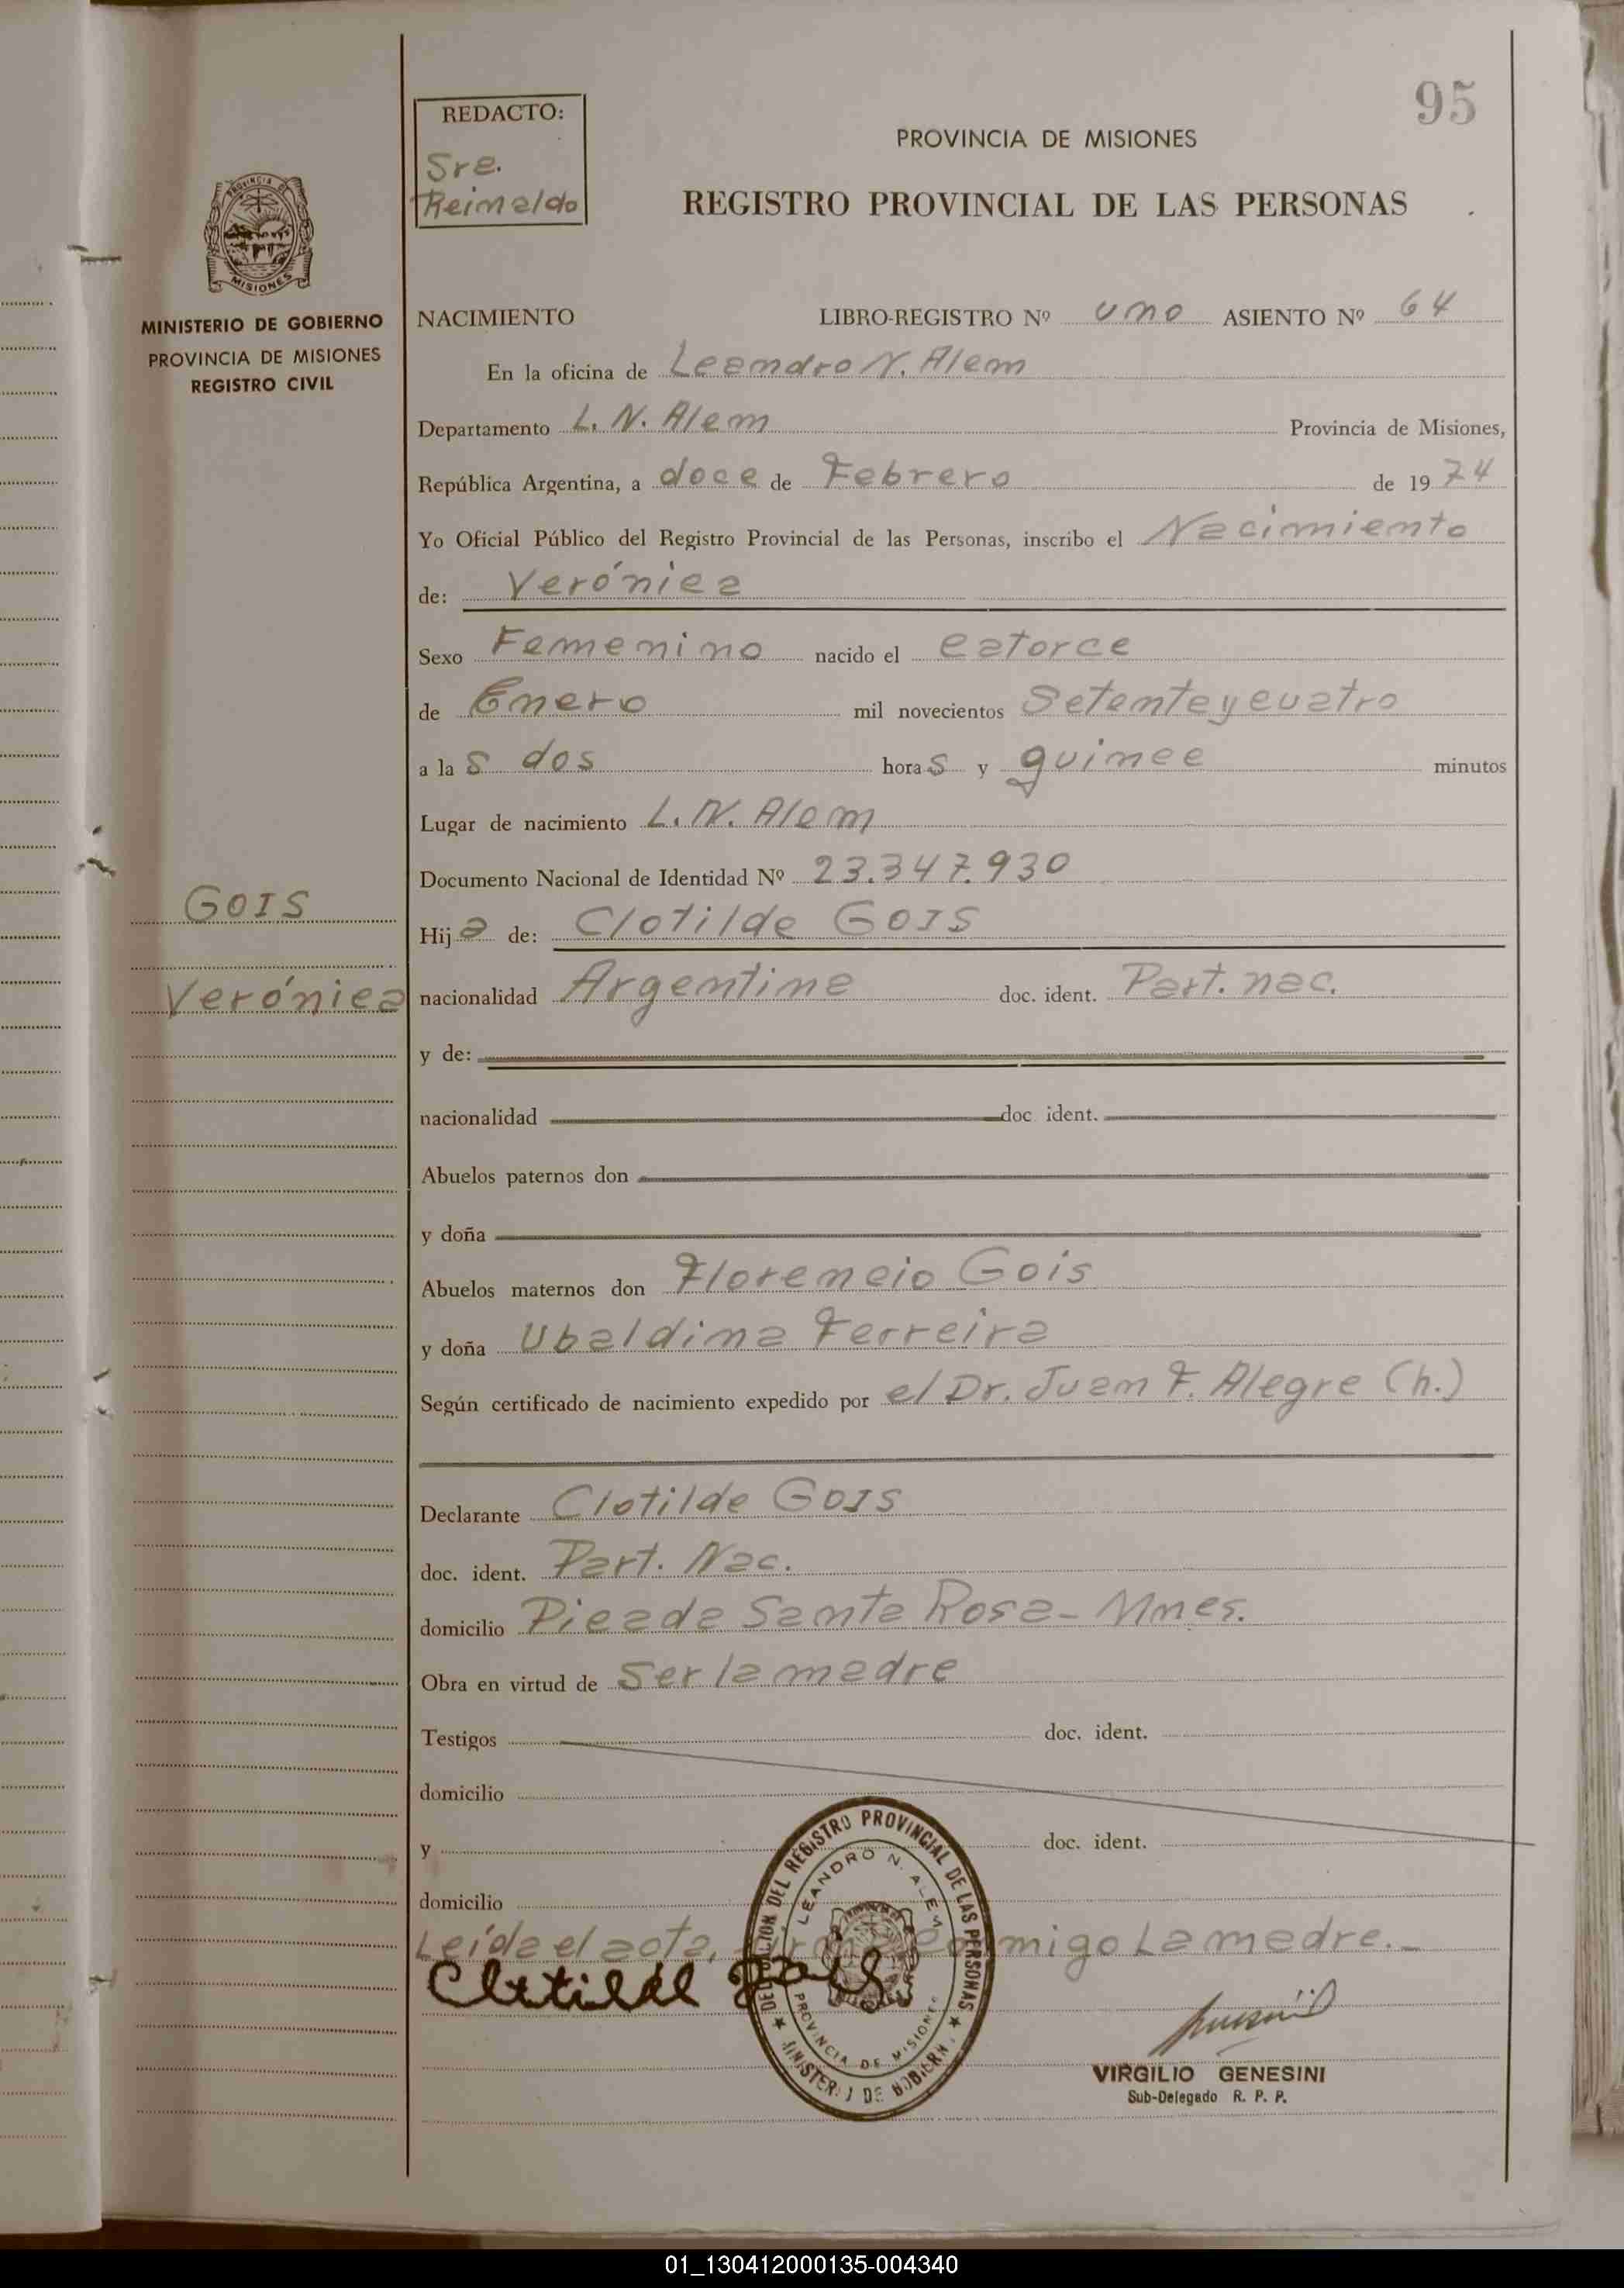 95
REDACTO:
Sra.
Reinaldo
PROVINCIA DE MISIONES
REGISTRO PROVINCIAL DE LAS PERSONAS
PROVINCIA DE
MISIONES
MINISTERIO DE GOBIERNO
PROVINCIA DE MISIONES
REGISTRO CIVIL
NACIMIENTO LIBRO-REGISTRO Nº uno ASIENTO Nº 64
En la oficina de Leandro N. Alem
Departamento L. N. Alem Provincia de Misiones,
República Argentina, a doce de Febrero de 19 74
Yo Oficial Público del Registro Provincial de las Personas, inscribo el Nacimiento
de: Verónica
Sexo Femenino nacido el catorce
de Enero mil novecientos Setenta y cuatro
a la s dos hora s y quince minutos
Lugar de nacimiento L. N. Alem
Documento Nacional de Identidad Nº 23.347.930
GOIS
Hij a de: Clotilde GOIS
Verónica
nacionalidad Argentina doc. ident. Part. nac.
y de:
nacionalidad doc ident.
Abuelos paternos don
y doña
Abuelos maternos don Florencio Gois
y doña Ubaldina Ferreira
Según certificado de nacimiento expedido por el Dr. Juan F. Alegre (h.)
Declarante Clotilde GOIS
doc. ident. Part. Nac.
domicilio Picada Santa Rosa - Mnes.
Obra en virtud de Ser la madre
Testigos doc. ident.
domicilio
y doc. ident.
domicilio
Leída el acta, conmigo La madre.-
Clotilde gois
DELEGACION DEL REGISTRO PROVINCIAL DE LAS PERSONAS
LEANDRO N. ALEM
PROVINCIA DE MISIONES
MINISTERIO DE GOBIERNO
VIRGILIO GENESINI
Sub-Delegado R. P. P.
01_130412000135-004340